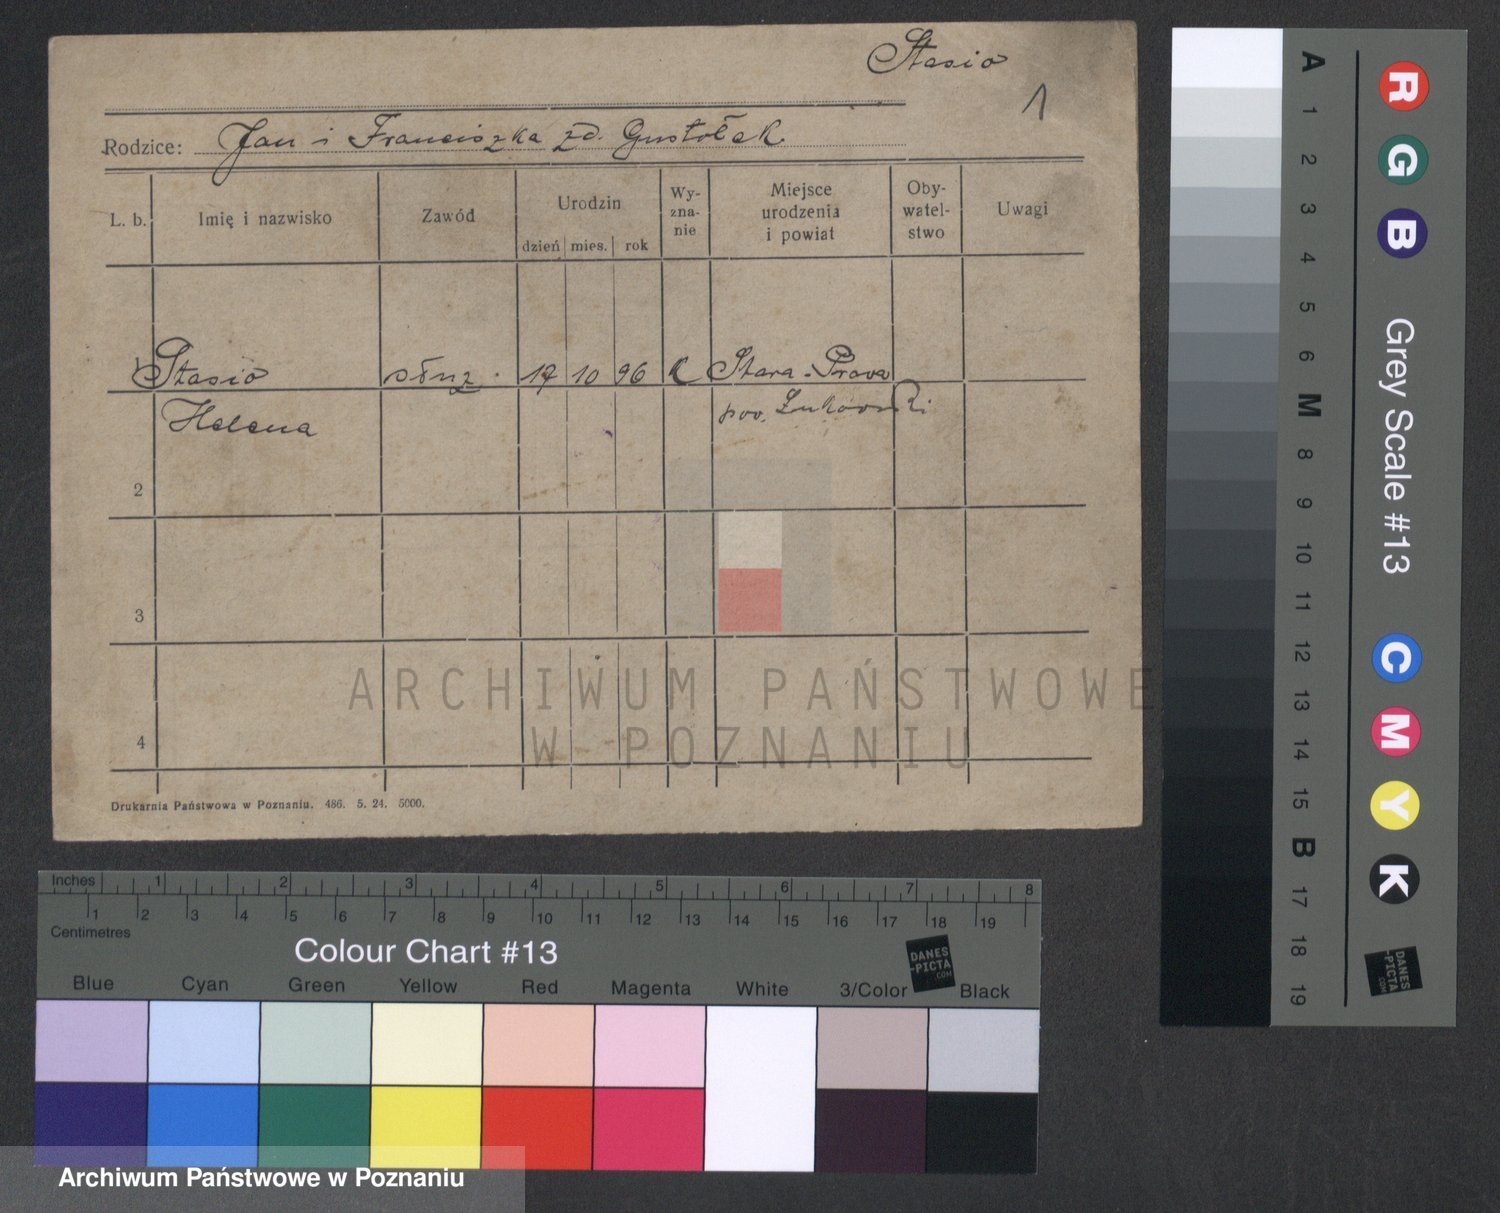 Stasio
1
Rodzice: Jan i Franciszka zd. Gustołek
L. b. Imię i nazwisko Zawód Urodzin dzień mies. rok Wy-zna-nie Miejsce urodzenia i powiat Oby-watel-stwo Uwagi
Stasio służ. 17 10 96 k Stara-Prawa
Helena pow. Łukowski
2
3
4
Drukarnia Państwowa w Poznaniu. 486. 5. 24. 5000.
ARCHIWUM PAŃSTWOWE
W POZNANIU
Inches 1 2 3 4 5 6 7 8
1 2 3 4 5 6 7 8 9 10 11 12 13 14 15 16 17 18 19
Centimetres
Colour Chart #13
DANES-PICTA.COM
Blue Cyan Green Yellow Red Magenta White 3/Color Black
Archiwum Państwowe w Poznaniu
A 1 2 3 4 5 6 M 8 9 10 11 12 13 14 15 B 17 18 19
R G B Grey Scale #13 C M Y K
DANES-PICTA.COM